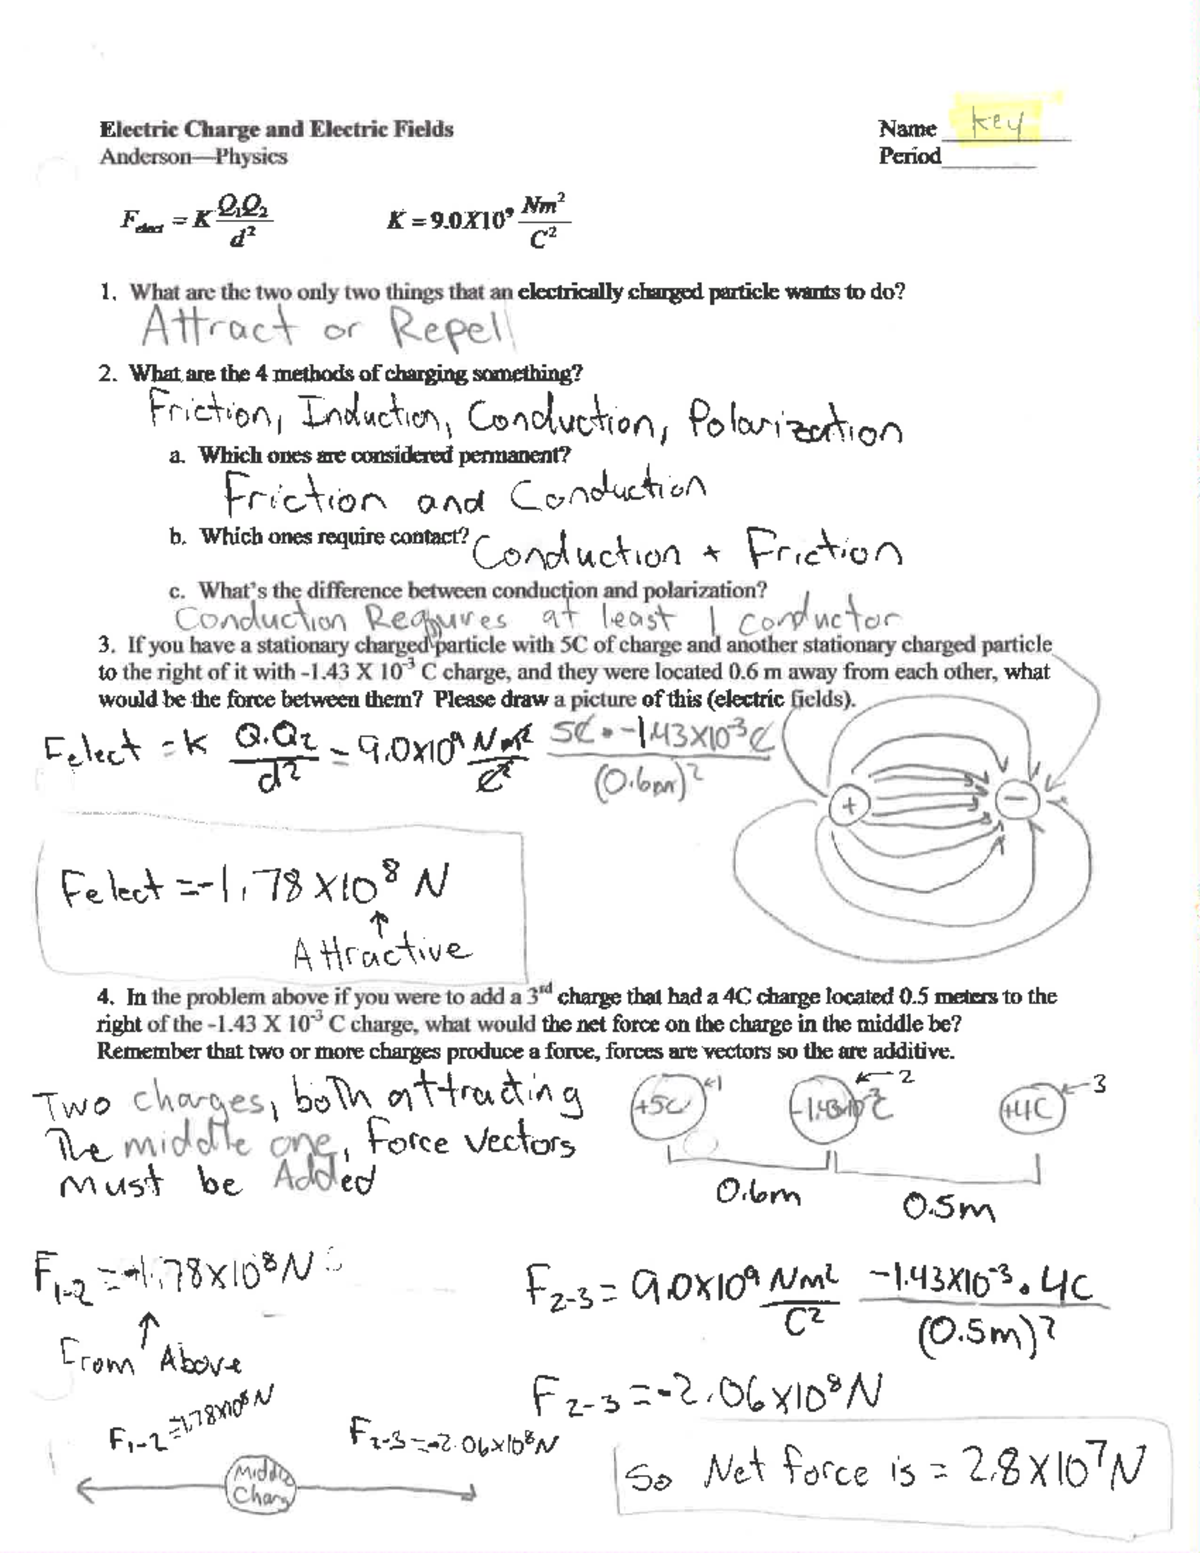 Electric Charge and Electric Fields
Name Key
Anderson—Physics
Period
F_elect = K Q₁Q₂ / d²
K = 9.0X10⁹ Nm² / C²
1. What are the two only two things that an electrically charged particle wants to do?
Attract or Repell
2. What are the 4 methods of charging something?
Friction, Induction, Conduction, Polarization
a. Which ones are considered permanent?
Friction and Conduction
b. Which ones require contact? Conduction + Friction
c. What's the difference between conduction and polarization?
Conduction Requires at least 1 conductor
3. If you have a stationary charged particle with 5C of charge and another stationary charged particle
to the right of it with -1.43 X 10⁻³ C charge, and they were located 0.6 m away from each other, what
would be the force between them? Please draw a picture of this (electric fields).
Felect = K Q₁Q₂ / d² = 9.0X10⁹ Nm² / C² 5C • -1.43X10⁻³C / (0.6m)²
+ −
Felect = -1.78 X10⁸ N
↑
Attractive
4. In the problem above if you were to add a 3rd charge that had a 4C charge located 0.5 meters to the
right of the -1.43 X 10⁻³ C charge, what would the net force on the charge in the middle be?
Remember that two or more charges produce a force, forces are vectors so the are additive.
Two charges, both attracting
The middle one, Force vectors
must be Added
+5C ←1
-1.43x10⁻³C ←2
+4C ←3
0.6m
0.5m
F₁₋₂ = -1.78X10⁸N
↑
From Above
F₂₋₃ = 9.0X10⁹ Nm² / C² -1.43X10⁻³ • 4C / (0.5m)²
F₂₋₃ = -2.06X10⁸N
F₁₋₂ = 1.78X10⁸N
F₂₋₃ = -2.06X10⁸N
Middle
Charg
So Net force is = 2.8X10⁷N